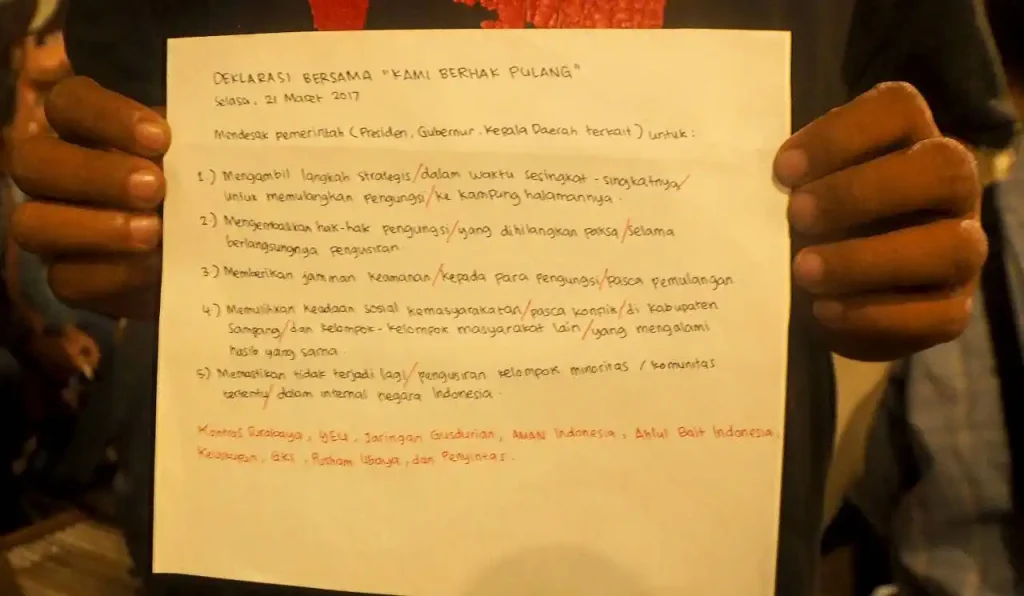 DEKLARASI BERSAMA "KAMI BERHAK PULANG"
Selasa, 21 Maret 2017
Mendesak pemerintah (Presiden, Gubernur, Kepala Daerah terkait) untuk:
1.) Mengambil langkah strategis/dalam waktu sesingkat-singkatnya/
untuk memulangkan pengungsi/ke kampung halamannya.
2.) Mengembalikan hak-hak pengungsi/yang dihilangkan paksa/selama
berlangsungnya pengusiran.
3.) Memberikan jaminan keamanan/kepada para pengungsi/pasca pemulangan
4.) Memulihkan keadaan sosial kemasyarakatan/pasca konflik/di Kabupaten
Sampang/dan kelompok-kelompok masyarakat lain/yang mengalami
nasib yang sama.
5.) Memastikan tidak terjadi lagi/pengusiran kelompok minoritas / komunitas
tertentu/dalam internal negara Indonesia.
Kontras Surabaya, YEU, Jaringan Gusdurian, AMAN Indonesia, Ahlul Bait Indonesia,
GKI, Pusham Ubaya, dan Penyintas.